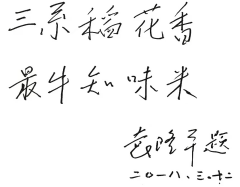 三系稻花香
最牛知味米
袁隆平题
二〇一八.三.十二